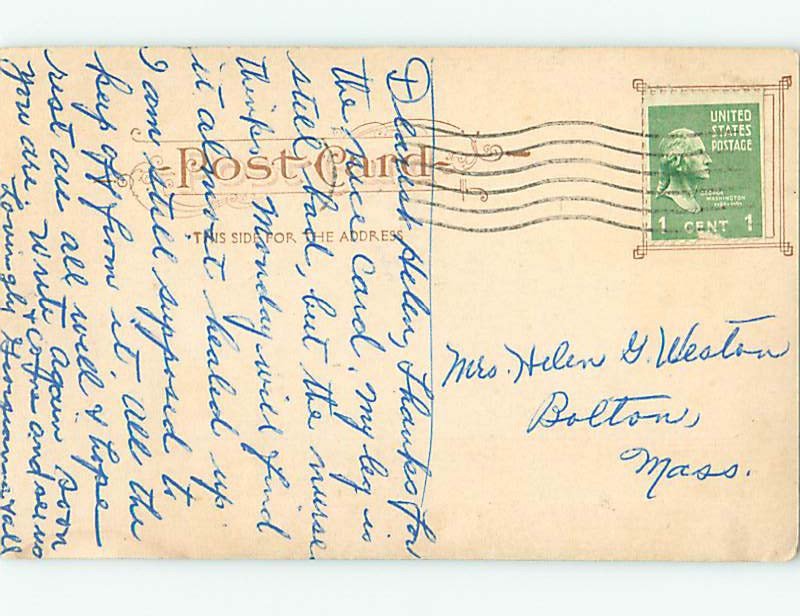 Post Card
THIS SIDE FOR THE ADDRESS
UNITED
STATES
POSTAGE
GEORGE
WASHINGTON
1 CENT 1
Dearest Helen, Thanks for
the nice card. My leg is
still bad, but the nurse
thinks Monday will find
it almost healed up.
I am still supposed to
keep off from it. All the
rest are all well & hope
you are. Write again soon
& come and see us
Lovingly Georgianna & all
Mrs. Helen G. Weston
Bolton,
Mass.